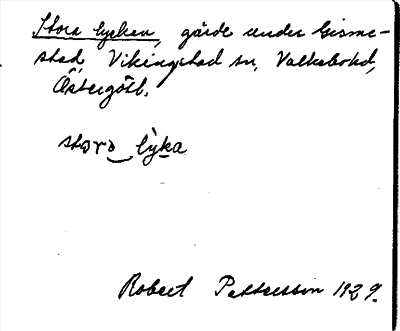 Stora lyckan, gärde under Gisme-
stad Vikingstad sn, Valkebo hd,
Östergötl.
stora lyka
Robert Pettersson 1929.